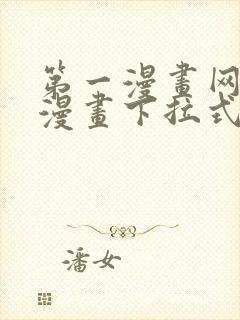 第一漫畫网
漫畫下拉式
潘女